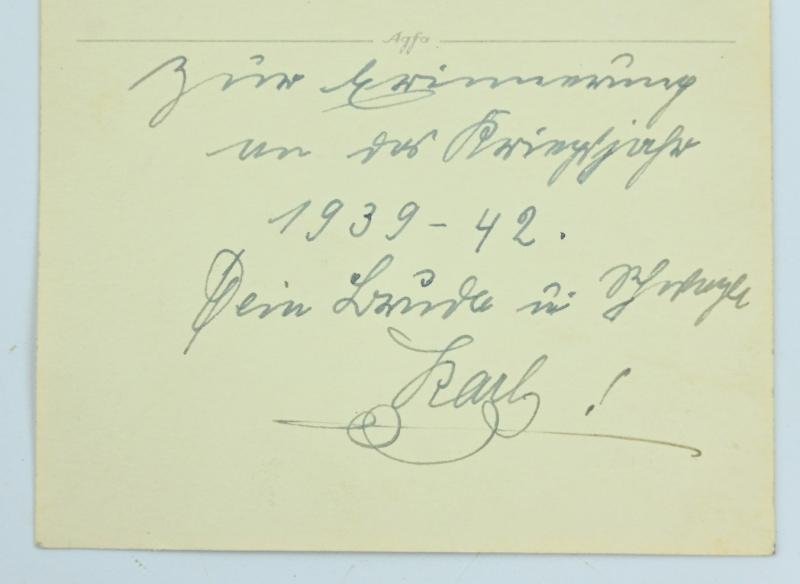 Agfa
Zur Erinnerung
an das Kriegsjahr
1939-42.
Dein Bruder u. Schwager
Karl!